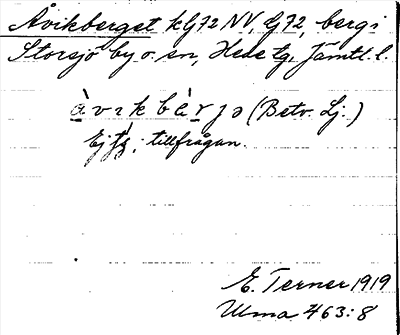 Åvikberget kG72 NV, G72, berg i
Storsjö by o. sn, Hede tg, Jämtl. l.
àvɩkbàrjə (Betv. Lj.)
Ej; tillfrågan.
E. Terner 1919
Ulma 463:8